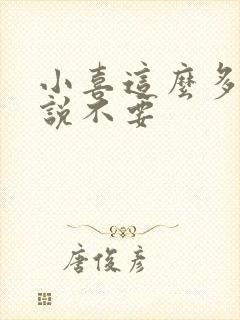 小喜這麼多
說不要
唐俊彥